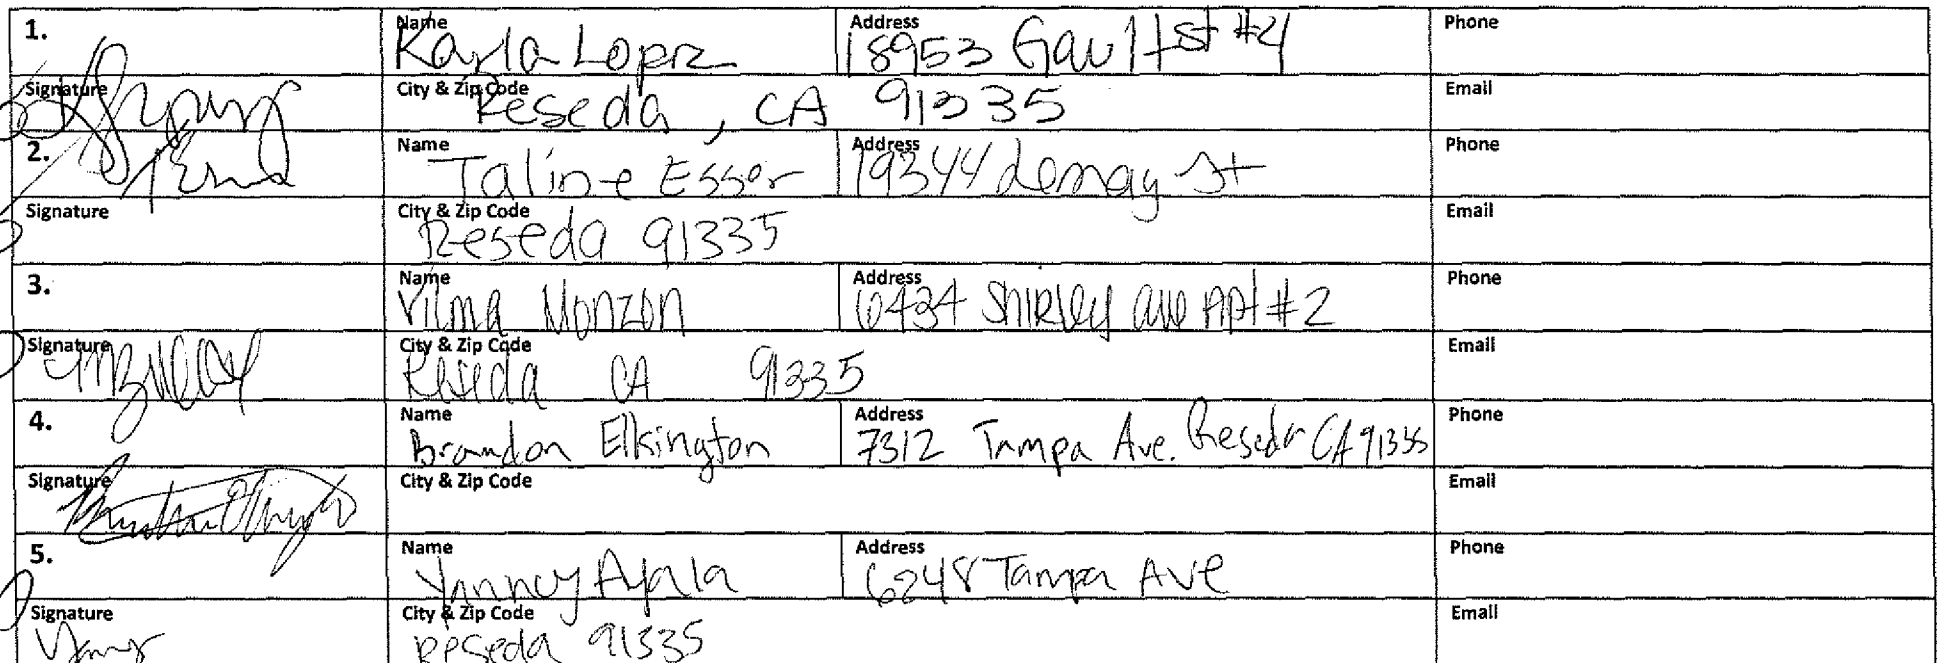 1. Name Karla Lopez Address 18953 Gault st #4 Phone
Signature City & Zip Code Reseda, CA 91335 Email
2. Name Taline Esser Address 19344 demay st Phone
Signature City & Zip Code Reseda 91335 Email
3. Name Vilma Monzon Address 6434 Shirley ave Apt #2 Phone
Signature City & Zip Code Reseda CA 91335 Email
4. Name Brandon Elkington Address 7312 Tampa Ave. Reseda CA 91335 Phone
Signature City & Zip Code Email
5. Name Yanncy Ayala Address 6248 Tampa Ave Phone
Signature City & Zip Code Reseda 91335 Email